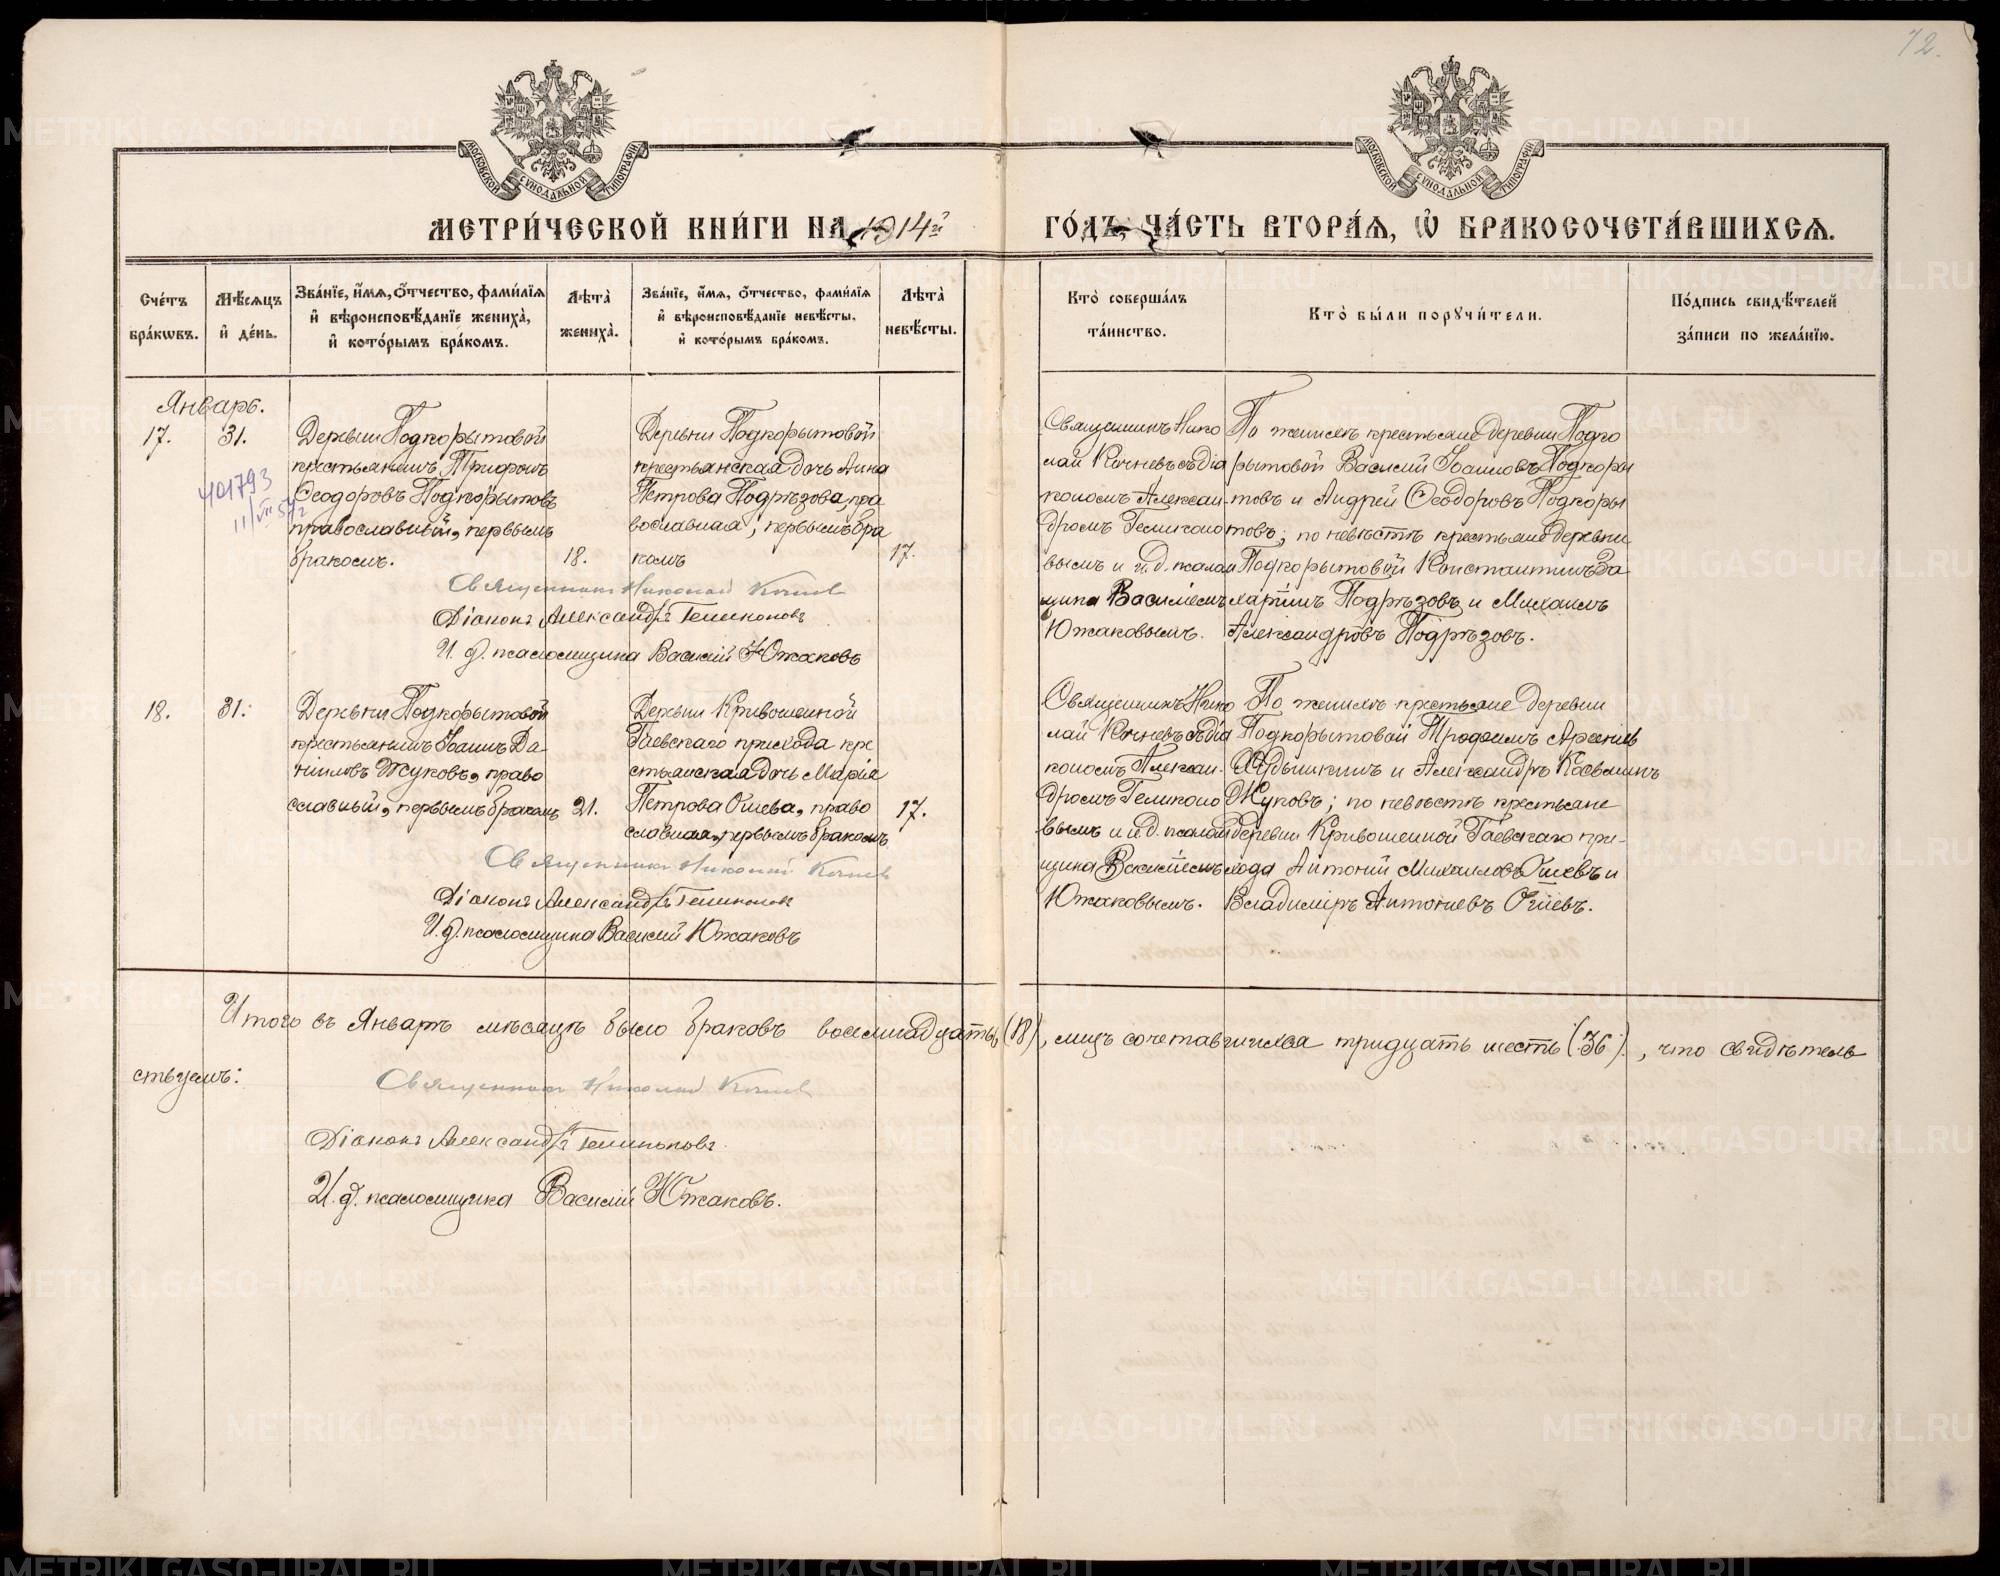 72.
МОСКОВСКОЙ СУНОДАЛЬНОЙ ТИПОГРАФІИ
МОСКОВСКОЙ СУНОДАЛЬНОЙ ТИПОГРАФІИ
МЕТРИ́ЧЕСКОЙ КНИ́ГИ НА 1914й
ГО́ДЪ, ЧА́СТЬ ВТОРА́Я, Ѽ БРАКОСОЧЕТА́ВШИХСЯ.
Сче́тъ бра́ковъ.
Мѣ́сяцъ и҆ де́нь.
Зва́нїе, и҆́мя, ѻ҆́тчество, фами́лїя и҆ вѣроисповѣ́данїе жениха̀, и҆ кото́рымъ бра́комъ.
Лѣ́та жениха̀.
Зва́нїе, и҆́мя, ѻ҆́тчество, фами́лїя и҆ вѣроисповѣ́данїе невѣ́сты, и҆ кото́рымъ бра́комъ.
Лѣ́та невѣ́сты.
Кто̀ соверша́лъ та́инство.
Кто̀ бы́ли порꙋчи́тели.
По́дпись свидѣ́телей за́писи по жела́нїю.
Январь.
17.
31.
401793
Деревни Подкорытовой
крестьянинъ Трифонъ
Ѳеодоровъ Подкорытовъ
православный, первымъ
бракомъ.
18.
Деревни Подкорытовой
крестьянская дочь Анна
Петрова Подрѣзова, пра
вославная, первымъ бра
комъ
17.
Священникъ Нико
лай Кочневъ съ діа
кономъ Алексан-
дромъ Геликоно
вымъ и и. д. псалом
щика Василіемъ
Южаковымъ.
По женихѣ крестьяне деревни Подко
рытовой Василій Іоанновъ Подкоры
товъ и Андрей Ѳеодоровъ Подкоры
товъ; по невѣстѣ крестьяне деревни
Подкорытовой Константинъ За
харіинъ Подрѣзовъ и Михаилъ
Александровъ Подрѣзовъ.
Священникъ Николай Кочнев
Діаконъ Александръ Геликоновъ
И. д. псаломщика Василій Южаковъ
18.
31.
Деревни Подкорытовой
крестьянинъ Іоаннъ Да-
ніиловъ Жуковъ, право
славный, первымъ бракомъ
21.
Деревни Кривошеиной
Гаевскаго прихода кре
стьянская дочь Марія
Петрова Ошева, право
славная, первымъ бракомъ
17.
Священникъ Нико
лай Кочневъ съ діа
кономъ Алексан-
дромъ Геликоно
вымъ и и. д. псалом
щика Василіемъ
Южаковымъ.
По женихѣ крестьяне деревни
Подкорытовой Трофимъ Арсеніев
и Александръ Косьминъ
Жуковъ; по невѣстѣ крестьяне
деревни Кривошеиной Гаевскаго при-
хода Антоній Михаиловъ Ошевъ и
Владиміръ Антоніевъ Ошевъ.
Священникъ Николай Кочнев
Діаконъ Александръ Геликоновъ
И. д. псаломщика Василій Южаковъ
Итого въ Январѣ мѣсяцѣ было браковъ восемнадцать (18), лицъ сочетавшихся тридцать шесть (36), что свидѣтель
ствуемъ:
Священникъ Николай Кочнев
Діаконъ Александръ Геликоновъ.
И. д. псаломщика Василій Южаковъ.
METRIKI.GASO-URAL.RU